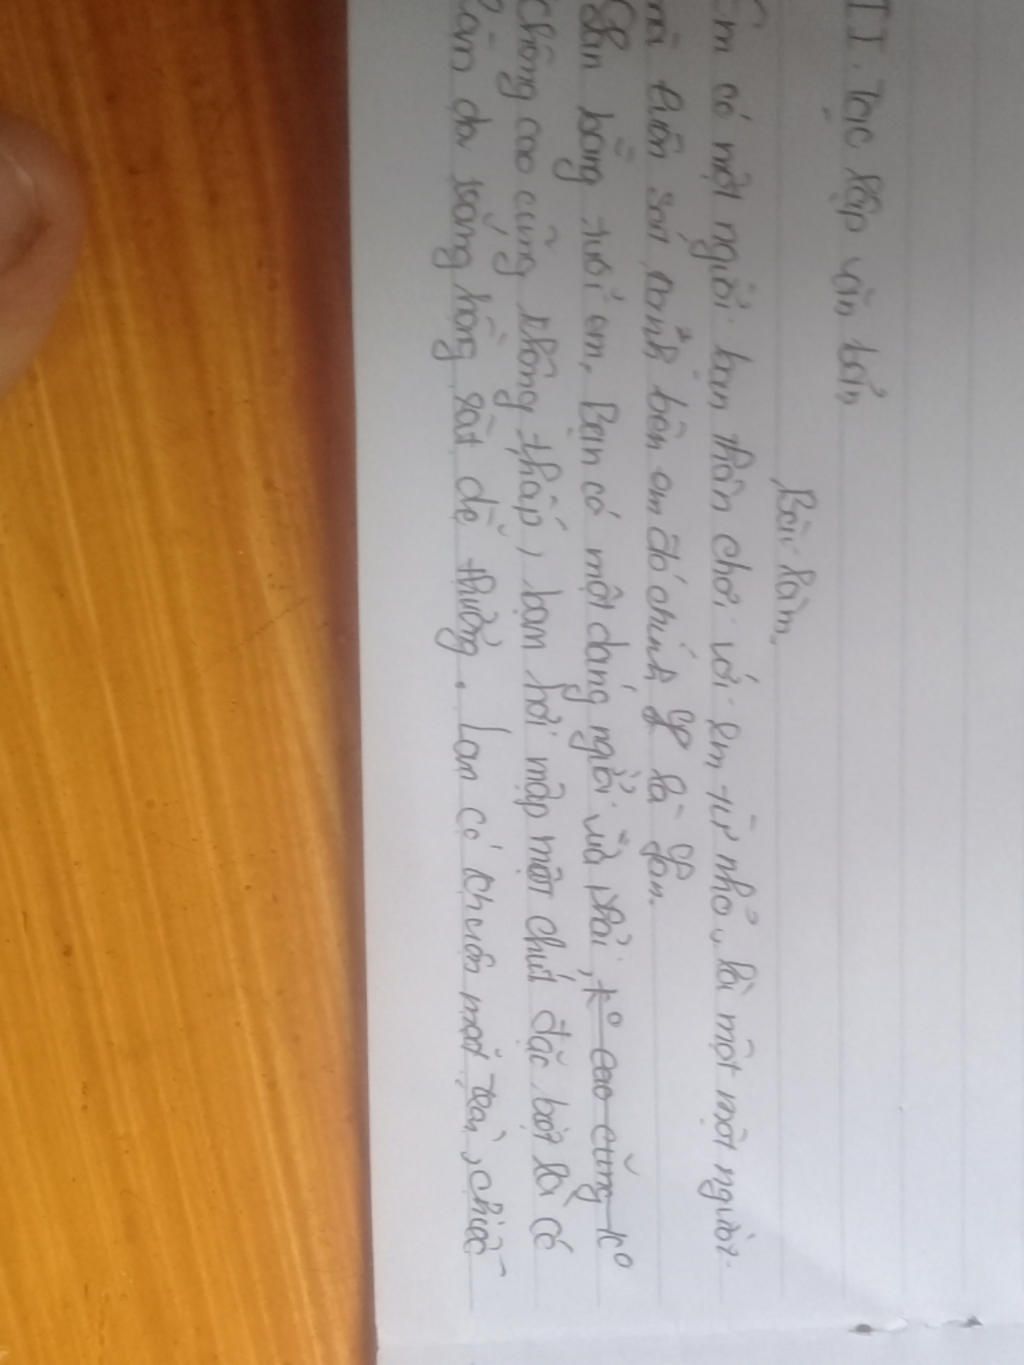 II. Tạc lập văn bản
Bài làm
Em có một người bạn thân chơi với em từ nhỏ, là một một người
mà luôn sát cánh bên em đó chính là Lan.
Lan bằng tuổi em, Bạn có một dáng người vừa phải, k° cao cũng k°
không cao cũng không thấp, bạn hơi mập một chút đặc biệt là có
làn da trắng hồng rất dễ thương. Lan có khuôn mặt tròn, chiếc